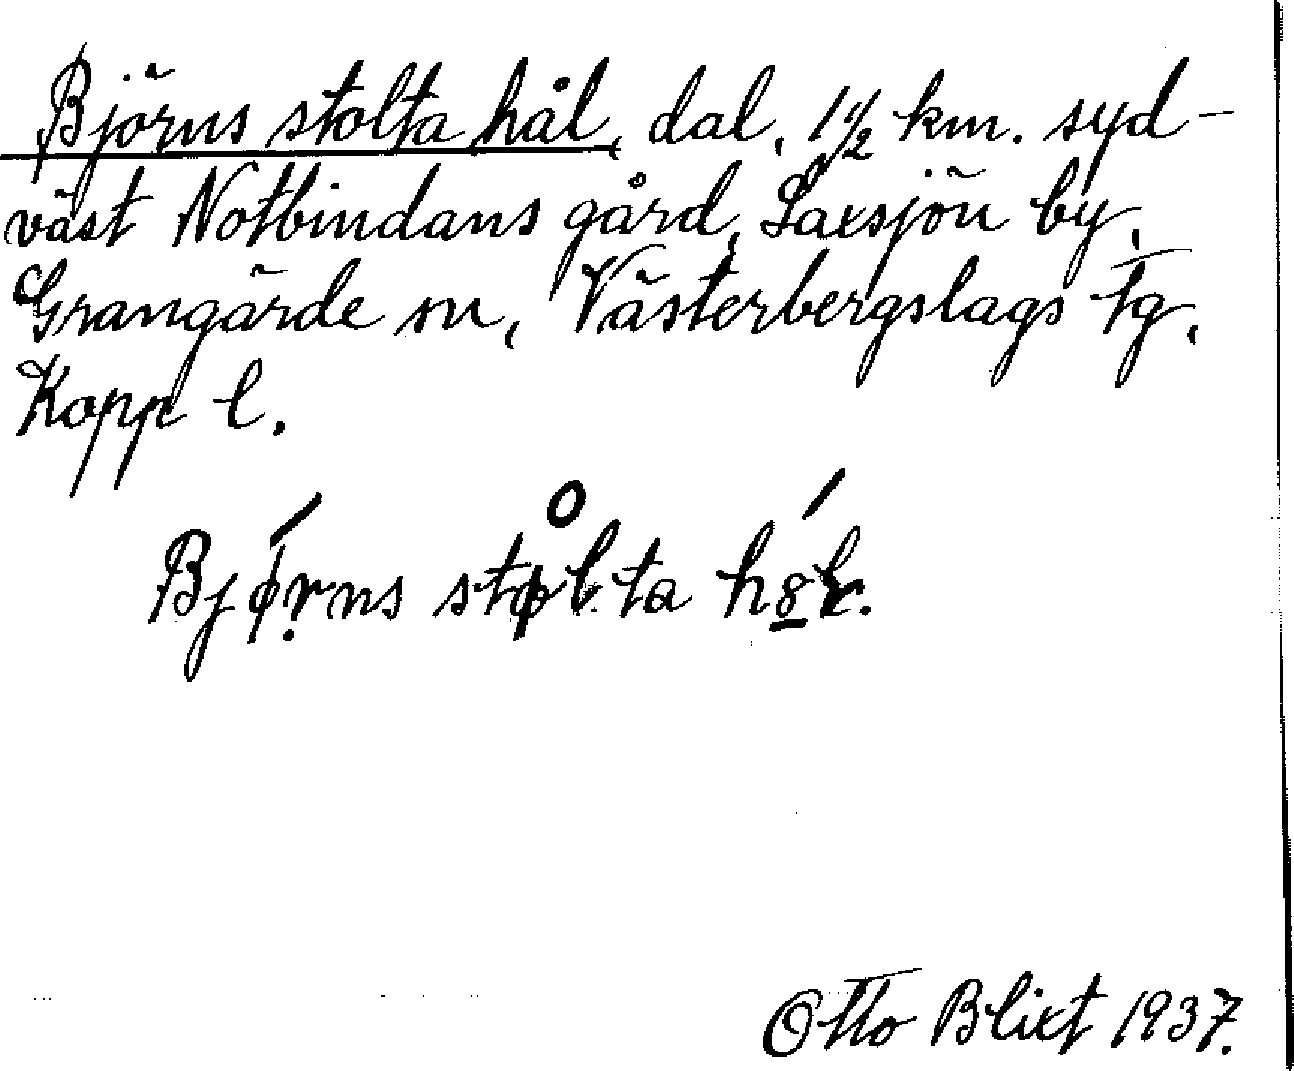 Björns stolta hål, dal, 1 1/2 km. syd-
väst Notbindans gård, Laxsjön by,
Grangärde sn, Västerbergslags tg.
Kopp l.
Otto Blixt 1937.